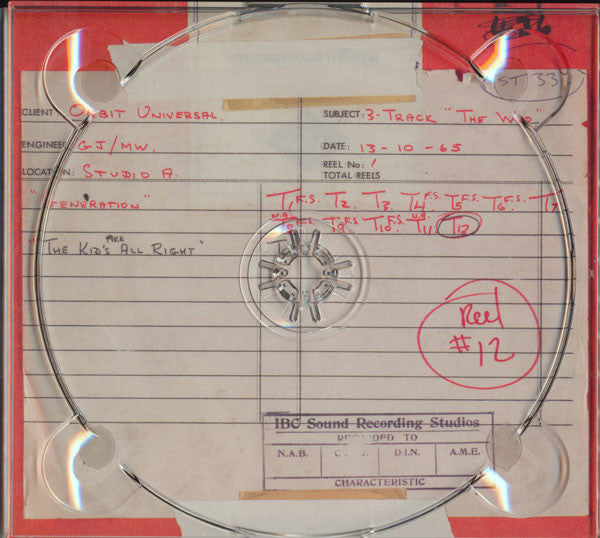 ST 33
CLIENT ORBIT UNIVERSAL. SUBJECT: 3-TRACK "THE WHO"
ENGINEER GJ/MW. DATE: 13-10-65
LOCATION: STUDIO A. REEL No: 1
TOTAL REELS
"GENERATION" T1 F.S. T2. T3. T4 F.S. T5 F.S. T6 F.S. T7
N.G. T8 F.S. T9 F.S. T10 F.S. N.G. T11 T12
"THE KID'S ARE ALL RIGHT"
Reel
#12
IBC Sound Recording Studios
RECORDED TO
N.A.B. D.I.N. A.M.E.
CHARACTERISTIC